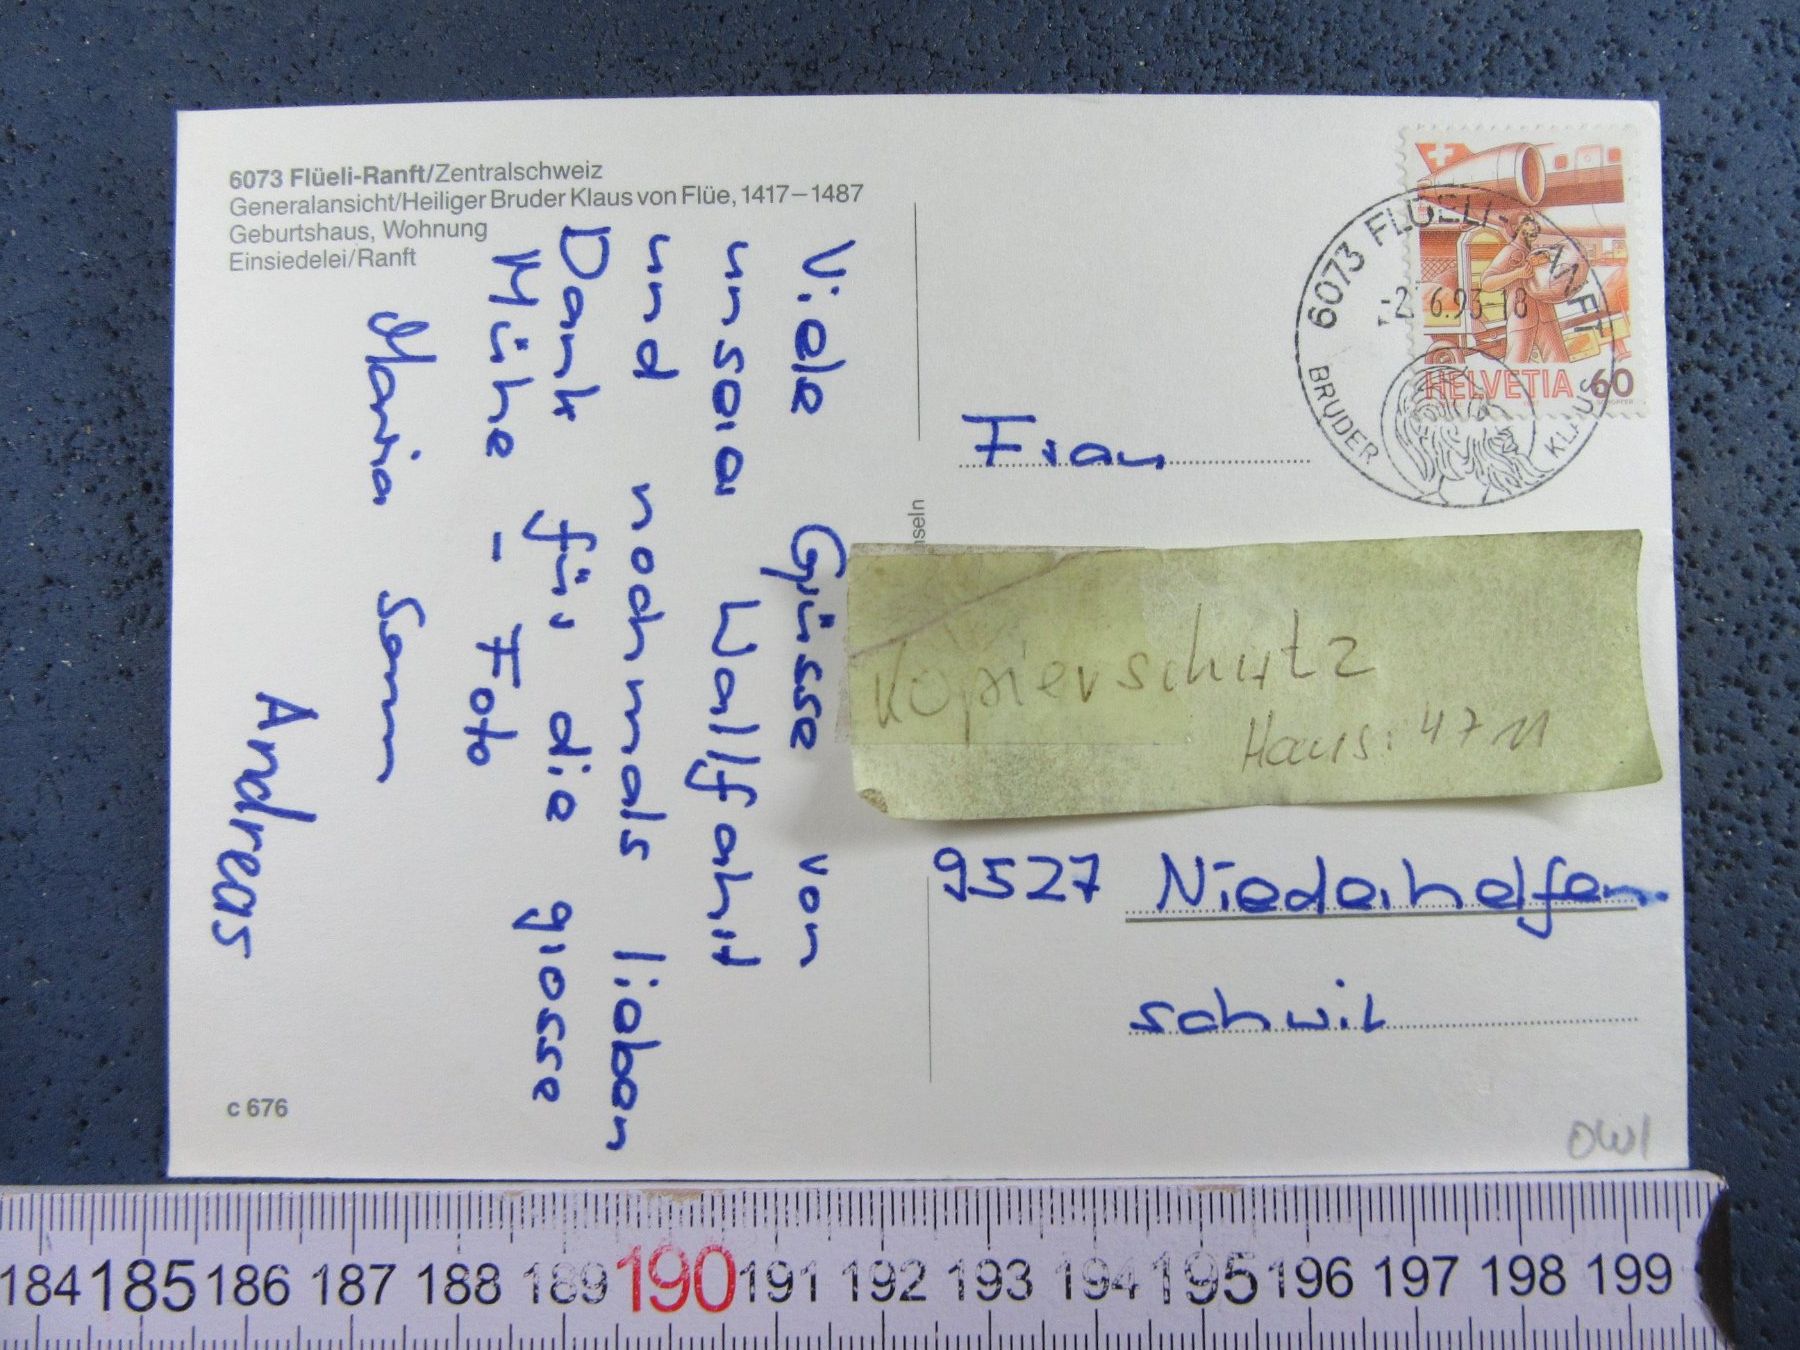 6073 Flüeli-Ranft/Zentralschweiz
Generalansicht/Heiliger Bruder Klaus von Flüe, 1417–1487
Geburtshaus, Wohnung
Einsiedelei/Ranft
Viele Grüsse von
unsera Wallfahrt
und nochmals lieben
Dank für die grosse
Mühe - Foto
Maria
Andreas
c 676
nseln
6073 FLÜELI-RANFT
-2.6.93-18
BRUDER KLAUS
HELVETIA 60
Frau
Kopierschutz
Haus: 4711
9527 Niederhelfen
schwil
OW1
184 185 186 187 188 189 190 191 192 193 194 195 196 197 198 199